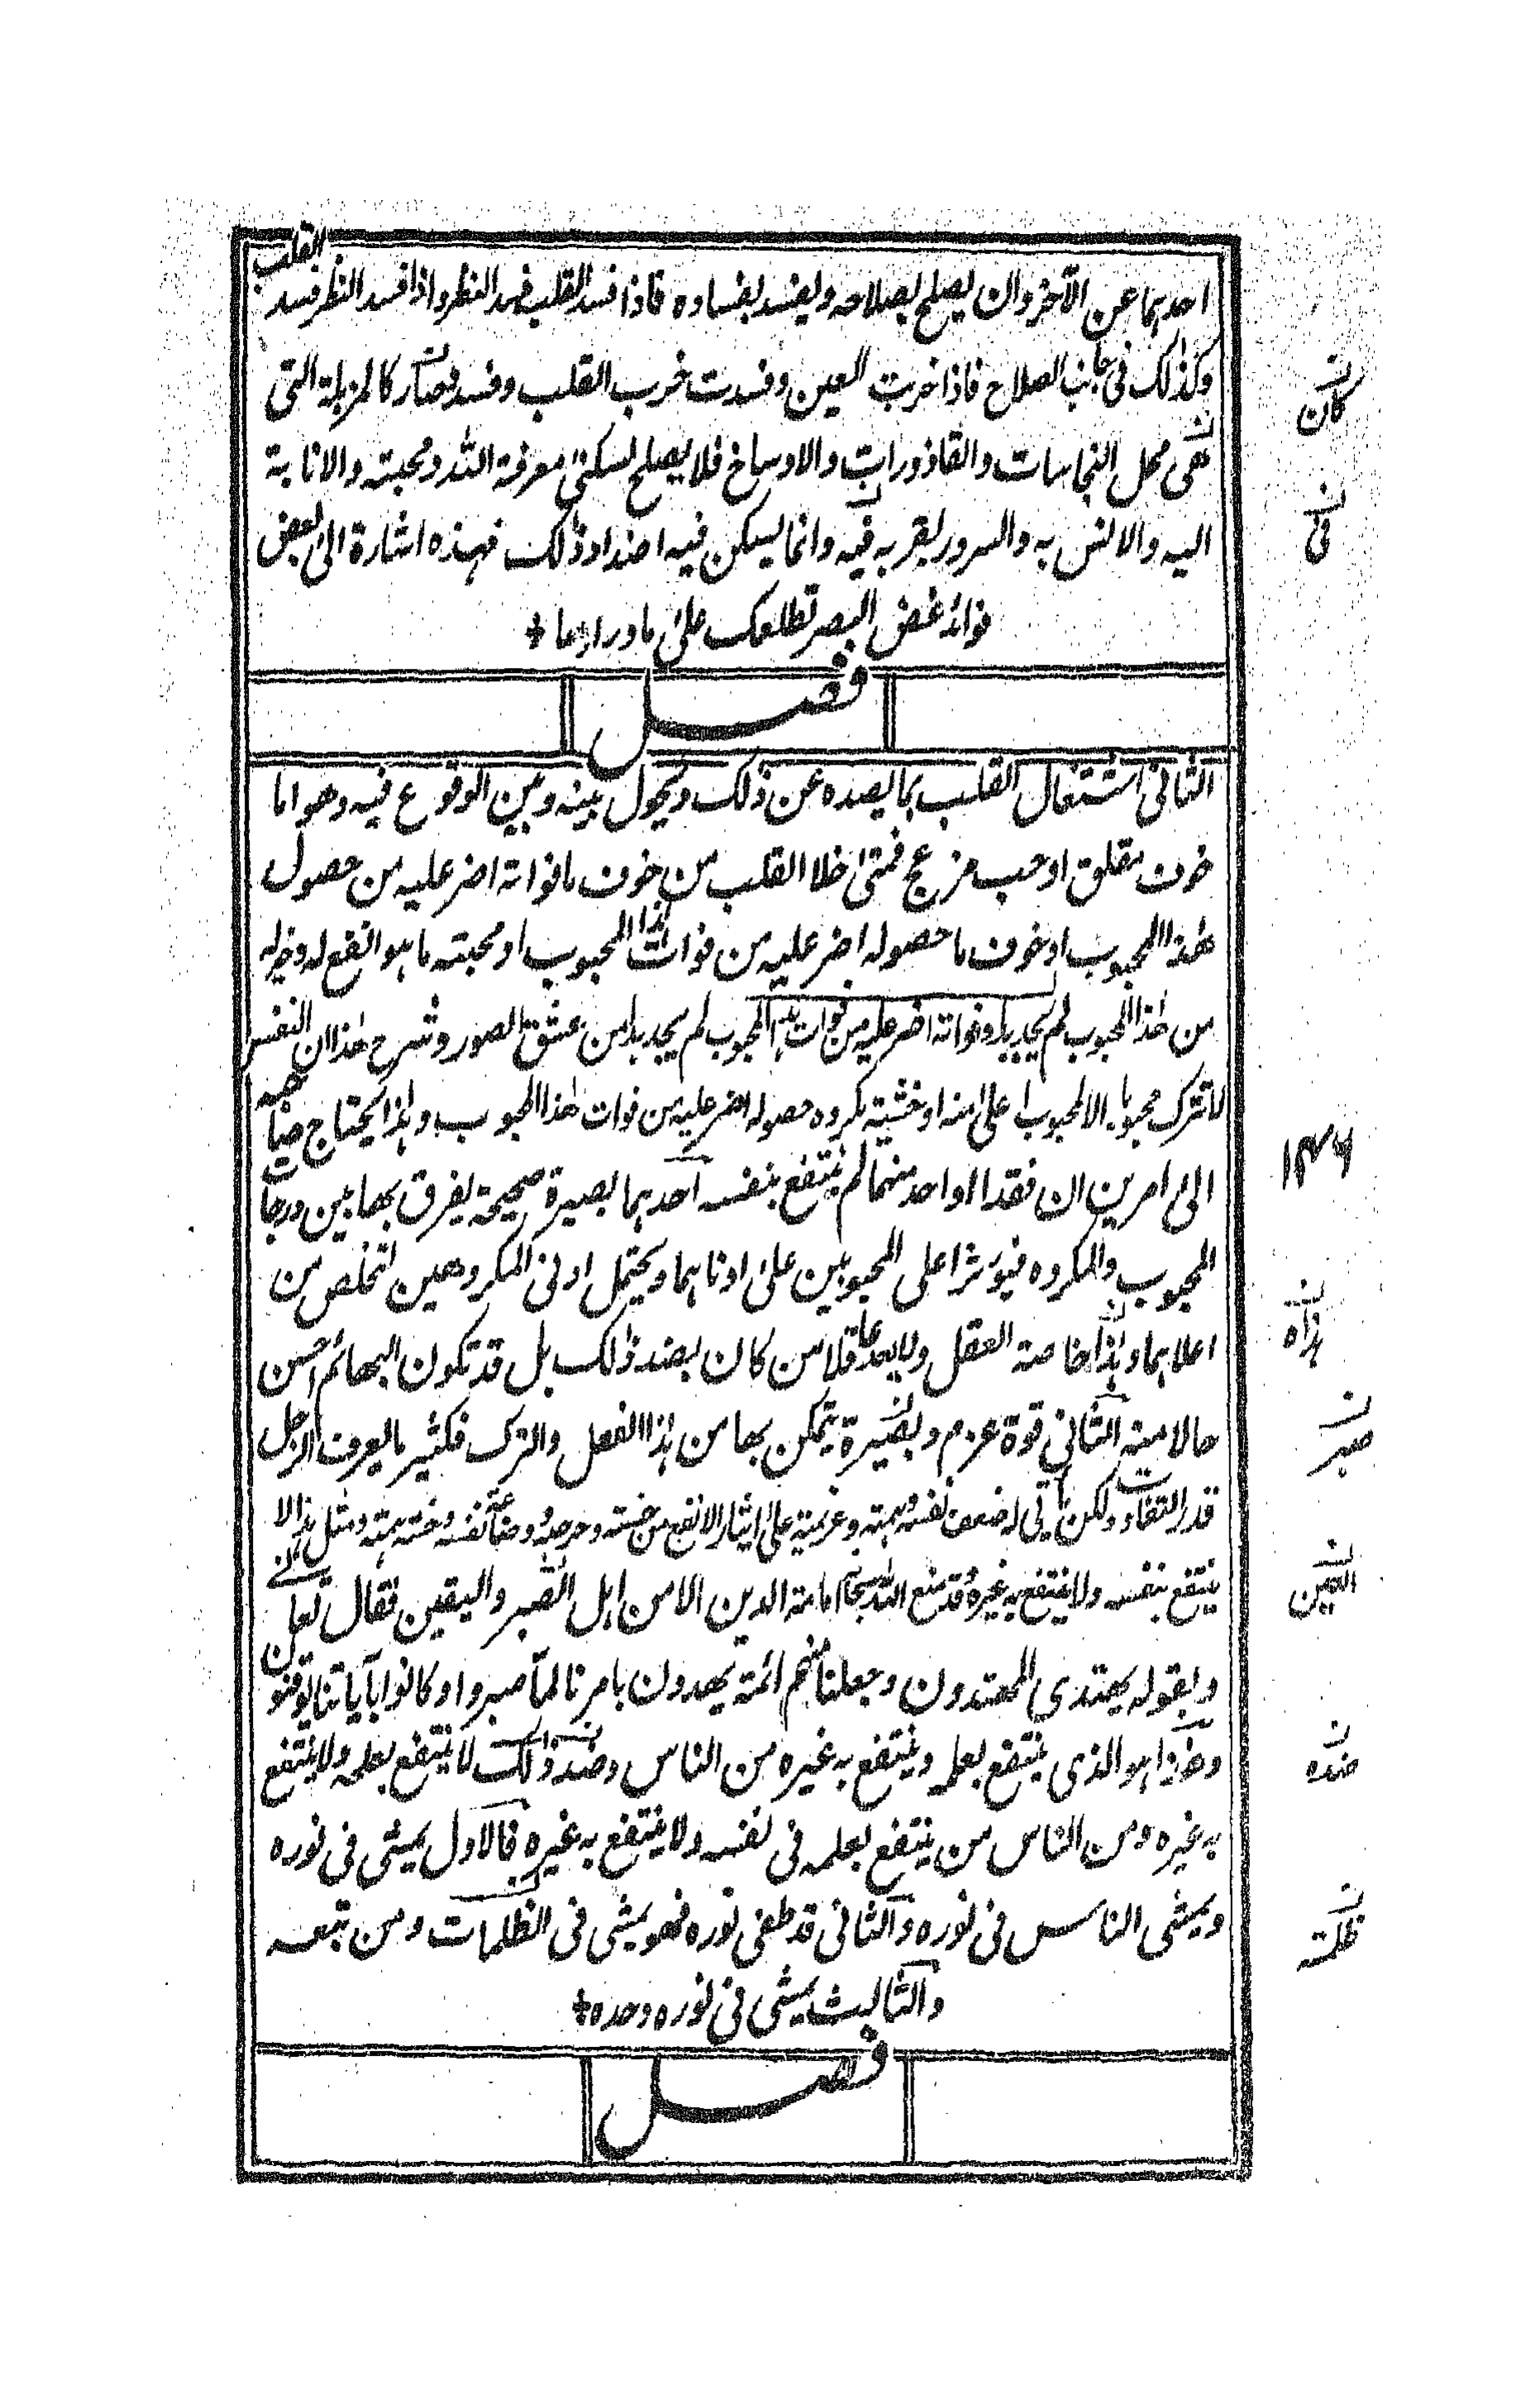 احدهما عن الآخر وان يصلح بصلاحه ويفسد بفساده فاذا فسد القلب فسد النظر واذا فسد النظر فسد القلب
وكذلك فى جانب الصلاح فاذا خربت العين وفسدت خرب القلب وفسد وصار كالمزبلة التى
هى محل النجاسات والقاذورات والاوساخ فلا يصلح لسكنى معرفة الله ومحبته والانابة
اليه والانس به والسرور بقربه فيه وانما يسكن فيه اضداد ذلك فهذه اشارة الى بعض
فوائد غض البصر تطلعك على ما وراءها +
فصل
الثانى اشتغال القلب بما يصده عن ذلك ويحول بينه وبين الوقوع فيه وهو اما
خوف مقلق او حب مزعج فمتى خلا القلب من خوف ما فواته اضر عليه من حصول
هذا المحبوب او خوف ما حصوله اضر عليه من فوات هذا المحبوب او محبته ما هو انفع له وخير له
من هذا المحبوب لم يجد بدا وفواته اضر عليه من فوات هذا المحبوب لم يجد بدا من عشق الصور وشرح هذا ان النفس
لا تترك محبوبا الا لمحبوب اعلى منه او خشية مكروه حصوله اضر عليه من فوات هذا المحبوب وهذا يحتاج صاحبه
الى امرين ان فقدا او احد منهما لم ينتفع بنفسه احدهما بصيرة صحيحة يفرق بها بين درجات
المحبوب والمكروه فيؤثر اعلى المحبوبين على ادناهما ويحتمل ادنى المكروهين لتخلص من
اعلاهما وهذا خاصة العقل ولا يعد عاقلا من كان بضد ذلك بل قد تكون البهائم احسن
حالا منه الثانى قوة عزم وبصيرة يتمكن بها من هذا الفعل والترك فكثير ما يعرف الرجل
قدر التفاوت ولكن يأتى له ضعف نفسه وهمته وعزيمته على ايثار الانفع من خسته وحرصه وضعة نفسه وخسة همته ومثل هذا لا
ينتفع بنفسه ولا ينتفع به غيره وقد منع الله سبحانه امامة الدين الا من اهل الصبر واليقين فقال تعالى
وبقوله يهتدى المهتدون وجعلنا منهم ائمة يهدون بامرنا لما صبروا وكانوا بآياتنا يوقنون
وهذا هو الذى ينتفع بعلمه وينتفع به غيره من الناس وضد ذلك لا ينتفع بعلمه ولا ينتفع
به غيره ومن الناس من ينتفع بعلمه فى نفسه ولا ينتفع به غيره فالاول يمشى فى نوره
ويمشى الناس فى نوره والثانى قد طفى نوره فهو يمشى فى الظلمات ومن تبعه
والثالث يمشى فى نوره وحده +
فصل
كان
فى
۱۳۶
هذاه
صبر
اليمين
ضده
ظلمته